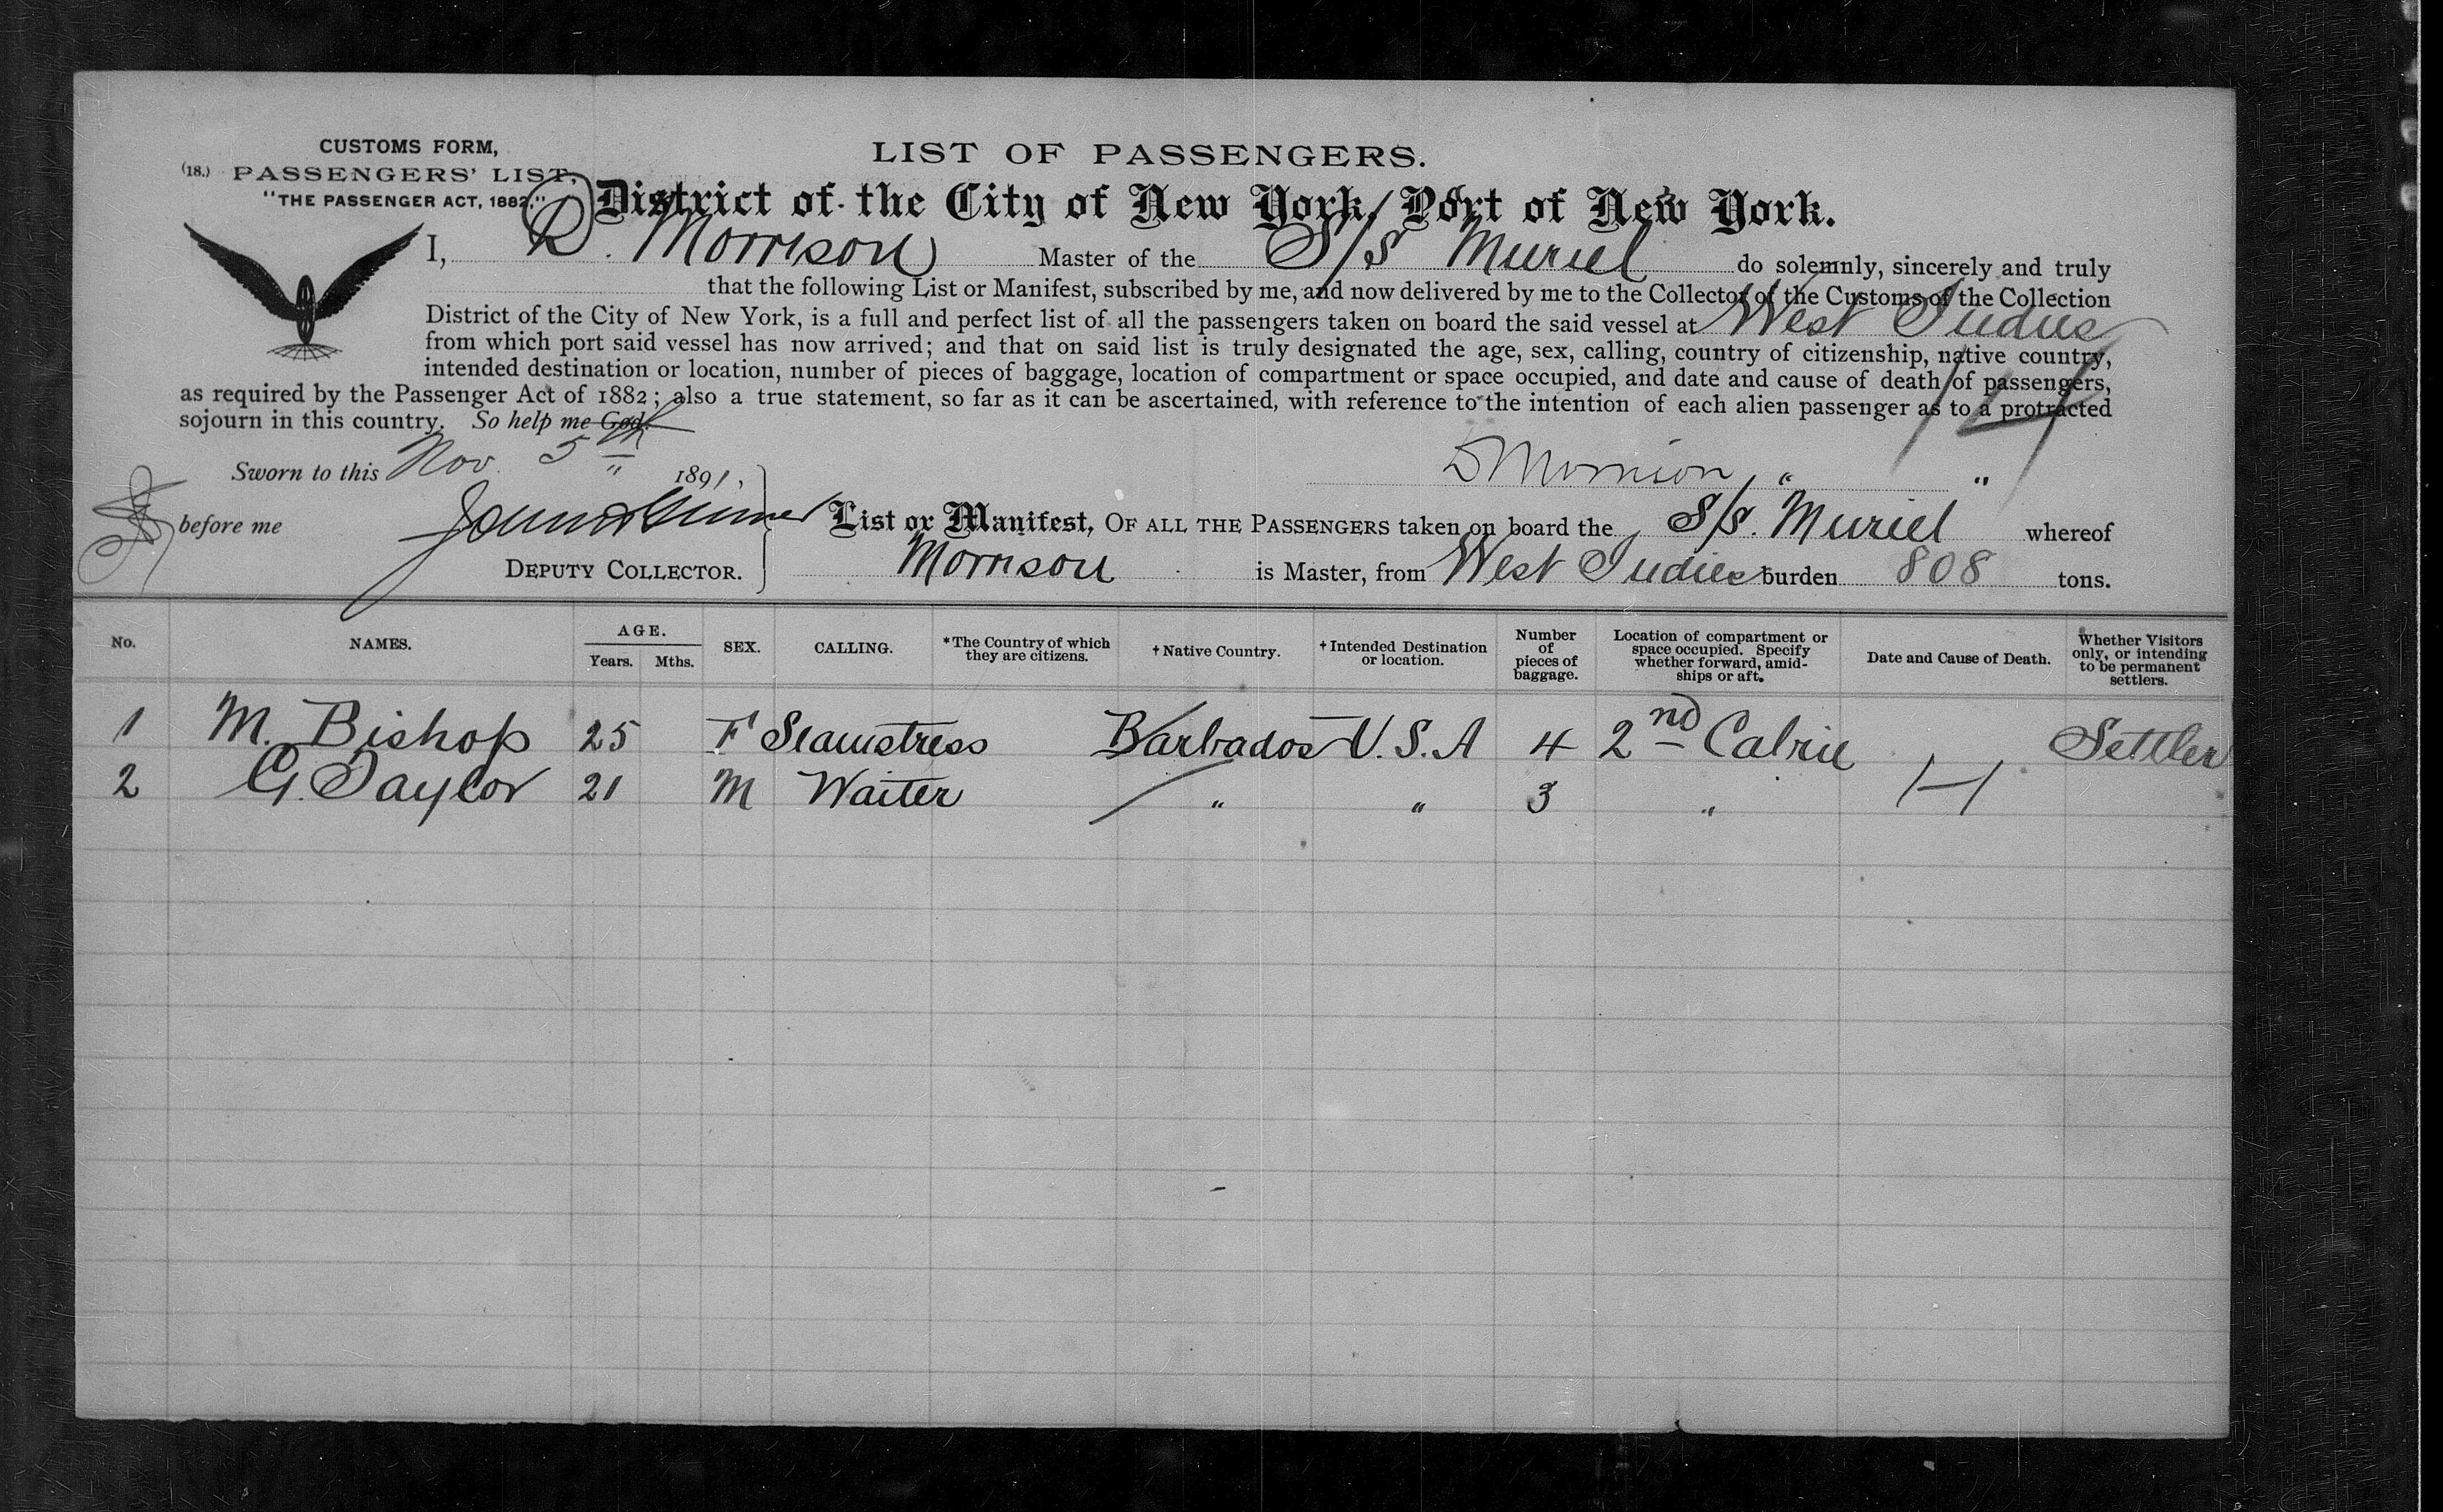 CUSTOMS FORM,
(18.) PASSENGERS' LIST,
"THE PASSENGER ACT, 1882."
LIST OF PASSENGERS.
District of the City of New York, Port of New York.
I, D. Morrison Master of the S/S Muriel do solemnly, sincerely and truly
that the following List or Manifest, subscribed by me, and now delivered by me to the Collector of the Customs of the Collection
District of the City of New York, is a full and perfect list of all the passengers taken on board the said vessel at West Indies
from which port said vessel has now arrived; and that on said list is truly designated the age, sex, calling, country of citizenship, native country,
intended destination or location, number of pieces of baggage, location of compartment or space occupied, and date and cause of death of passengers,
as required by the Passenger Act of 1882; also a true statement, so far as it can be ascertained, with reference to the intention of each alien passenger as to a protracted
sojourn in this country. So help me God.
Sworn to this Nov. 5th 1891,
D Morrison
before me
DEPUTY COLLECTOR.
List or Manifest, OF ALL THE PASSENGERS taken on board the S/S. Muriel whereof
Morrison is Master, from West Indies burden 808 tons.
No. NAMES. AGE. Years. Mths. SEX. CALLING. *The Country of which they are citizens. †Native Country. †Intended Destination or location. Number of pieces of baggage. Location of compartment or space occupied. Specify whether forward, amidships or aft. Date and Cause of Death. Whether Visitors only, or intending to be permanent settlers.
1 M. Bishop 25 F Seamstress Barbados U.S.A 4 2nd Cabin Settler
2 G. Taylor 21 M Waiter " " 3 "